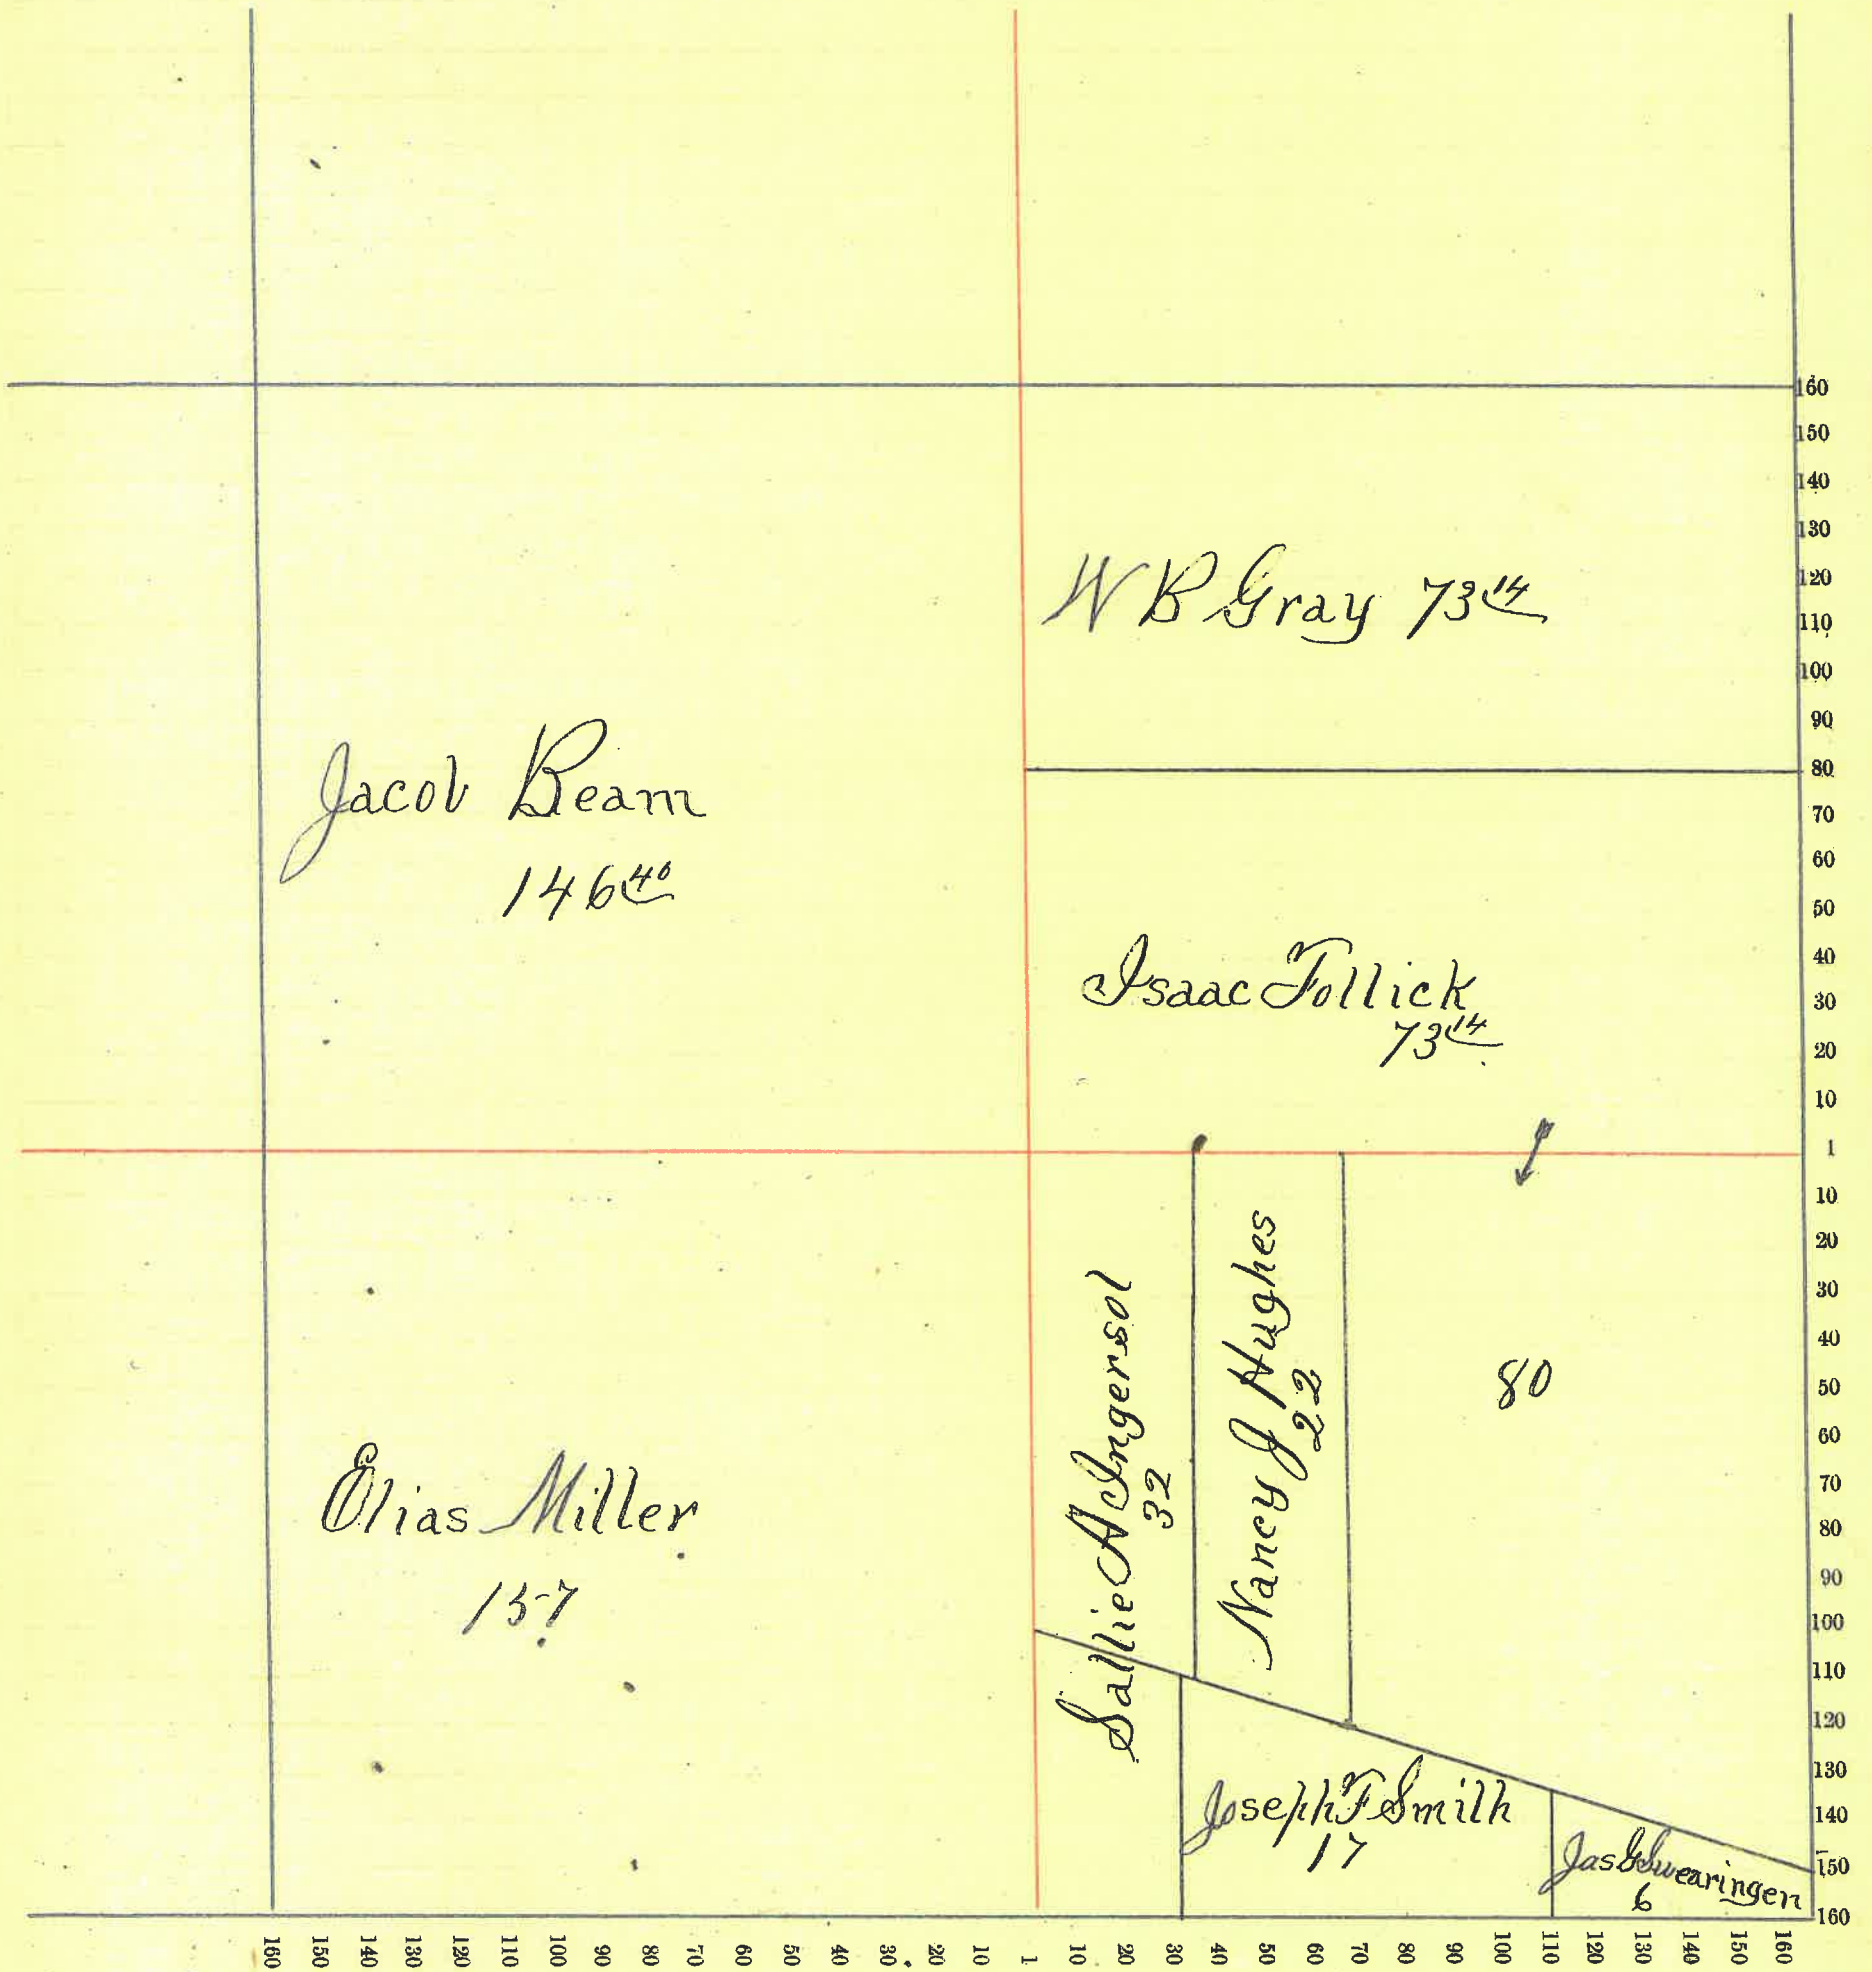 W B Gray 73 14
Jacob Beam
146 40
Isaac Follick
73 14
Sallie A Ingersol
32
Nancy J Hughes
22
80
Elias Miller
157
Joseph F Smith
17
Jas G Swearingen
6
160
150
140
130
120
110
100
90
80
70
60
50
40
30
20
10
1
10
20
30
40
50
60
70
80
90
100
110
120
130
140
150
160
160 150 140 130 120 110 100 90 80 70 60 50 40 30 20 10 1 10 20 30 40 50 60 70 80 90 100 110 120 130 140 150 160